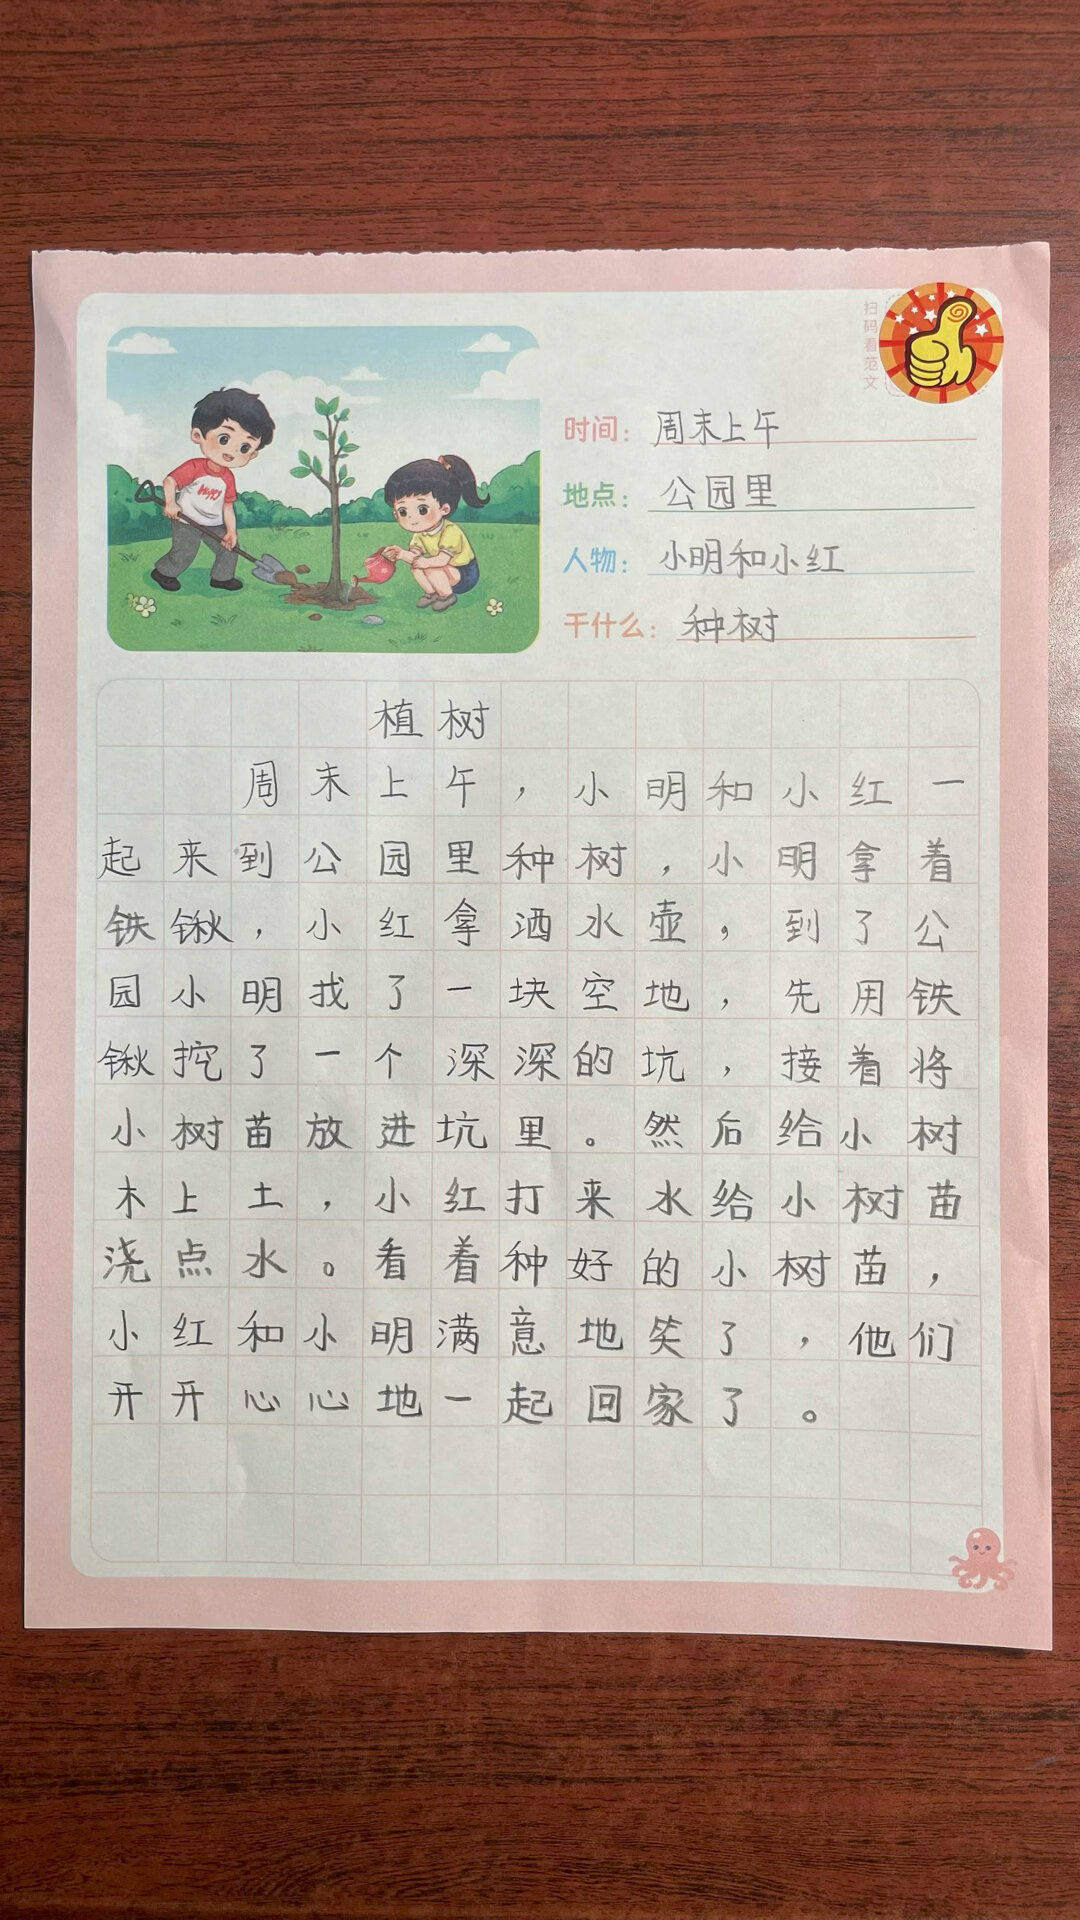 扫码看范文
时间：周末上午
地点：公园里
人物：小明和小红
干什么：种树
植树
周末上午，小明和小红一
起来到公园里种树，小明拿着
铁锹，小红拿洒水壶，到了公
园小明找了一块空地，先用铁
锹挖了一个深深的坑，接着将
小树苗放进坑里。然后给小树
木上土，小红打来水给小树苗
浇点水。看着种好的小树苗，
小红和小明满意地笑了，他们
开开心心地一起回家了。